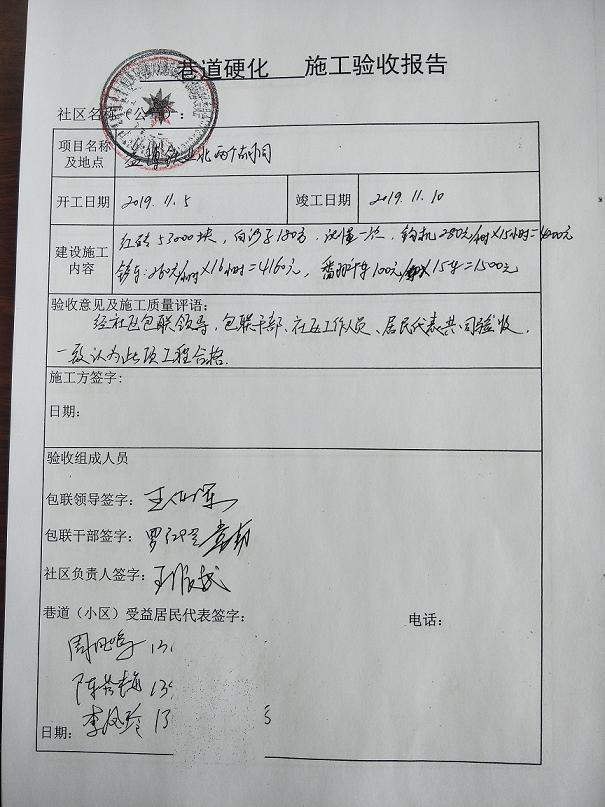 巷道硬化 施工验收报告
社区名称(公章):
项目名称及地点
北两个胡同
开工日期 2019.11.5 竣工日期 2019.11.10
建设施工内容
红砖53000块,白沙子180方, 钩机280元/小时×15小时=4200元
铲车:260元/小时×16小时=4160元, 100元/ ×15 =1500元
验收意见及施工质量评语:
经社区包联领导、包联干部、社区工作人员、居民代表共同验收,
一致认为此项工程合格.
施工方签字:
日期:
验收组成人员
包联领导签字:
包联干部签字:
社区负责人签字:
巷道(小区)受益居民代表签字: 电话:
13
陈 13
李凤玲 13
日期: